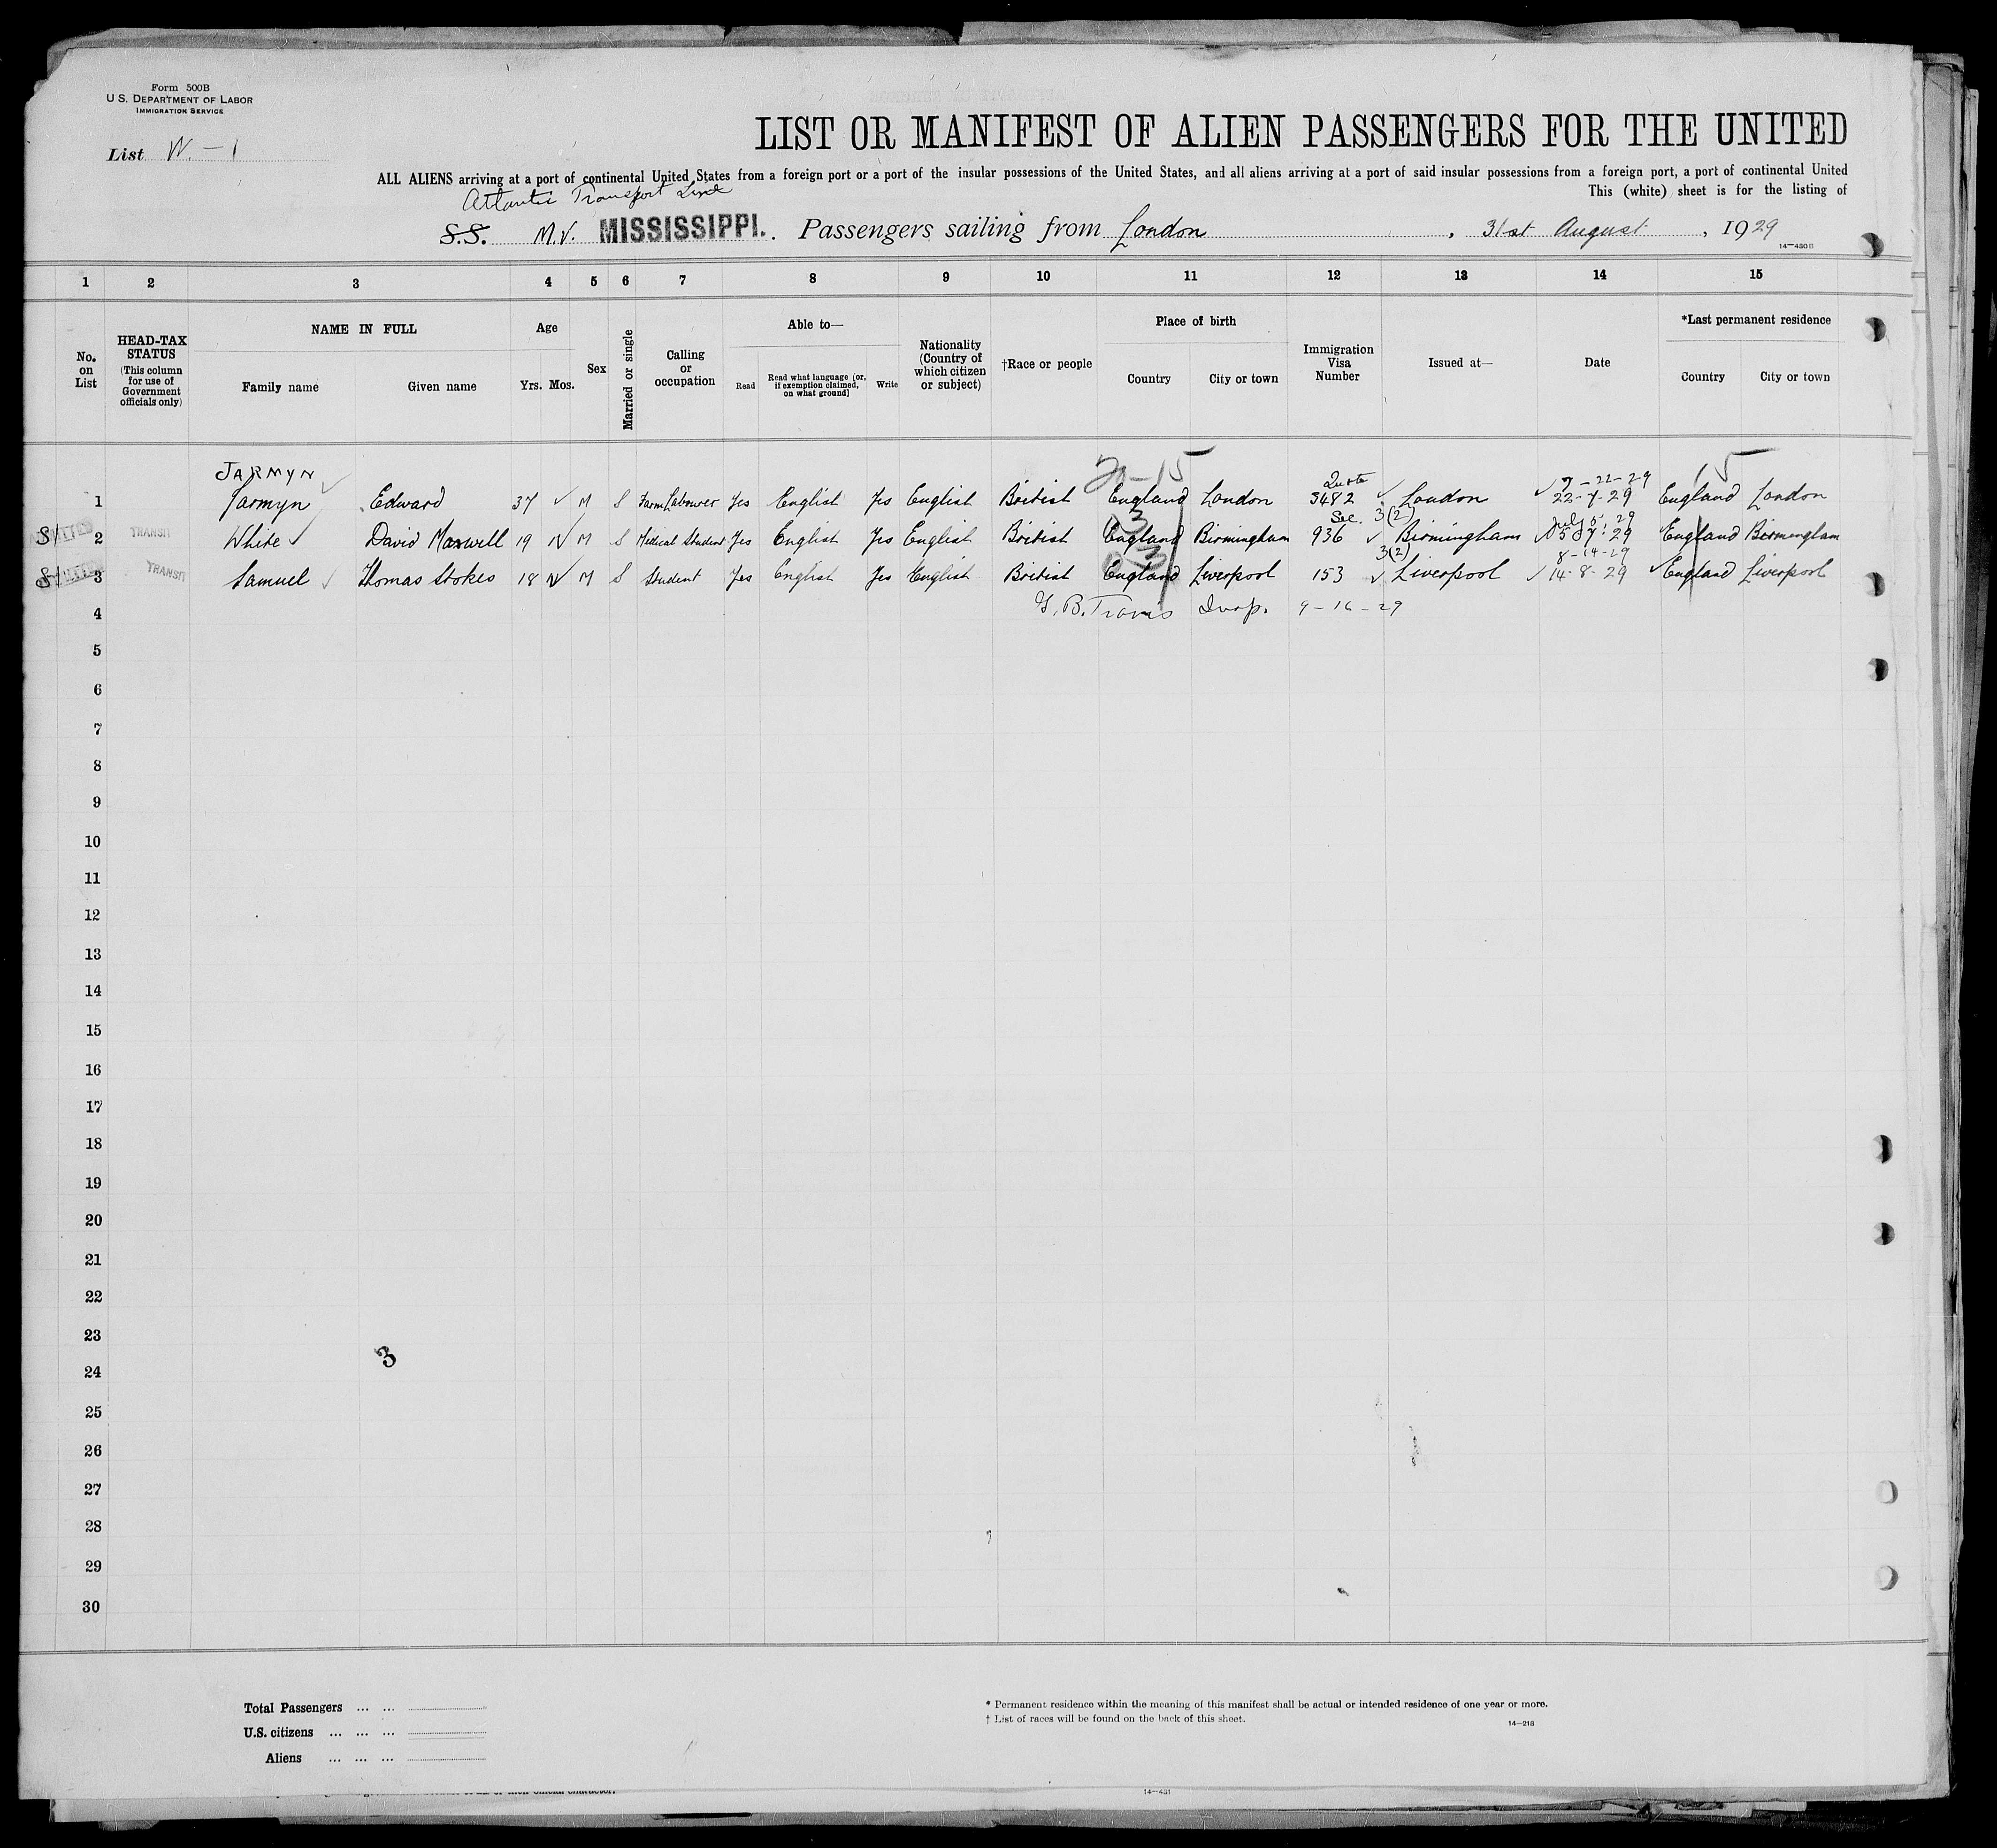 Form 500B
U.S. DEPARTMENT OF LABOR
IMMIGRATION SERVICE
List W.-1
LIST OR MANIFEST OF ALIEN PASSENGERS FOR THE UNITED
ALL ALIENS arriving at a port of continental United States from a foreign port or a port of the insular possessions of the United States, and all aliens arriving at a port of said insular possessions from a foreign port, a port of continental United
This (white) sheet is for the listing of
Atlantic Transport Line
S.S. M.V. MISSISSIPPI. Passengers sailing from London, 31st August, 1929
14-430B
1 2 3 4 5 6 7 8 9 10 11 12 13 14 15
No. on List
HEAD-TAX STATUS (This column for use of Government officials only)
NAME IN FULL
Family name Given name
Age
Yrs. Mos.
Sex
Married or single
Calling or occupation
Able to—
Read Read what language [or, if exemption claimed, on what ground] Write
Nationality (Country of which citizen or subject)
†Race or people
Place of birth
Country City or town
Immigration Visa Number
Issued at—
Date
*Last permanent residence
Country City or town
JARMYN 20-15 Quota 7-22-29 15
1 Jarmyn Edward 37 M S Farm Labourer Yes English Yes English British England London 3482 London 22-7-29 England London
3 Sec. 3(2) July 5: 29
2 TRANSIT White David Maxwell 19 M S Medical Student Yes English Yes English British England Birmingham 936 Birmingham 5:7:29 England Birmingham
3 3(2) 8-14-29
3 TRANSIT Samuel Thomas Stokes 18 M S Student Yes English Yes English British England Liverpool 153 Liverpool 14-8-29 England Liverpool
4 G.B. Travis Insp. 9-16-29
5
6
7
8
9
10
11
12
13
14
15
16
17
18
19
20
21
22
23
3
24
25
26
27
28
29
30
Total Passengers ... ...
U.S. citizens ... ... ...
Aliens ... ... ...
* Permanent residence within the meaning of this manifest shall be actual or intended residence of one year or more.
† List of races will be found on the back of this sheet.
14-218
14-431